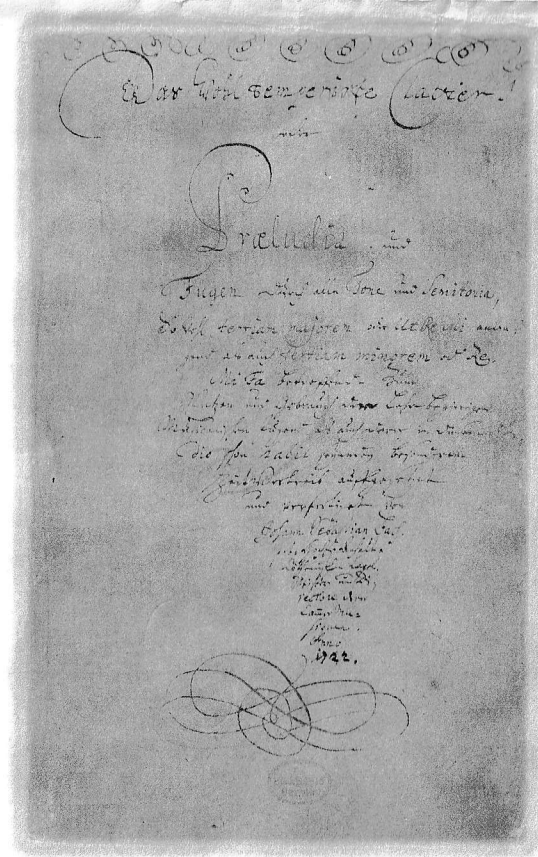 Das Wohltemperirte Clavier.
oder
Præludia, und
Fugen durch alle Tone und Semitonia,
So wohl tertiam majorem oder Ut Re Mi anlan-
gend, als auch tertiam minorem oder Re
Mi Fa betreffend. Zum
Nutzen und Gebrauch der Lehr-begierigen
Musicalischen Jugend, als auch derer in diesem studio
schon habil seyenden besonderem
Zeitvertreib auffgesetzet
und verfertiget von
Johann Sebastian Bach.
p. t. Hochfürstlich
Cöthenischen Capel-
Meistern und Di-
rectore derer
Cammer Mu-
siquen.
Anno
1722.